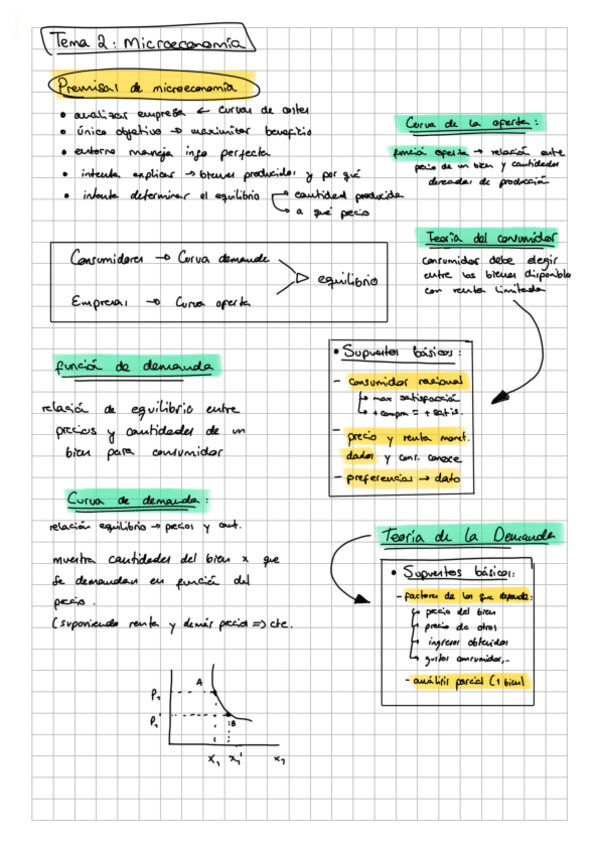 Tema 2: Microeconomía
Premisas de microeconomía
• analizar empresa ← curvas de costes
• único objetivo → maximizar beneficio
• entorno maneja info perfecta
• intenta explicar → bienes producidos y por qué
• intenta determinar el equilibrio → cantidad producida
→ a qué precio
Consumidores → Curva demanda
equilibrio
Empresas → Curva oferta
función de demanda
relación de equilibrio entre
precios y cantidades de un
bien para consumidor
Curva de demanda:
relación equilibrio → precios y cant.
muestra cantidades del bien x que
se demandan en función del
precio.
(suponiendo renta y demás precios => cte.
P1
P1'
A
B
X1 X1' X1
Curva de la oferta:
función oferta → relación entre
precio de un bien y cantidades
deseadas de producción
Teoría del consumidor
consumidor debe elegir
entre los bienes disponibles
con renta limitada
• Supuestos básicos:
- consumidor racional
→ max satisfacción
→ + compra = + satis.
- precio y renta monet.
dados y cons. conoce
- preferencias → dato
Teoría de la Demanda
• Supuestos básicos:
- factores de los que depende:
→ precio del bien
→ precio de otros
→ ingresos obtenidos
→ gustos consumidor,..
- análisis parcial (1 bien)